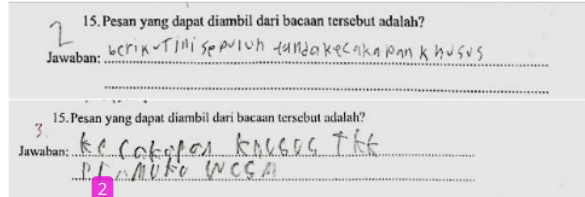 2
15. Pesan yang dapat diambil dari bacaan tersebut adalah?
Jawaban: berikutini sepuluh tandakecakapan khusus
3.
15. Pesan yang dapat diambil dari bacaan tersebut adalah?
Jawaban: kecakapan khusus tkk
2